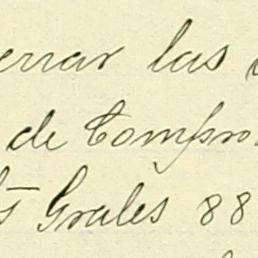 errar las
de Compro
ts Grales 88